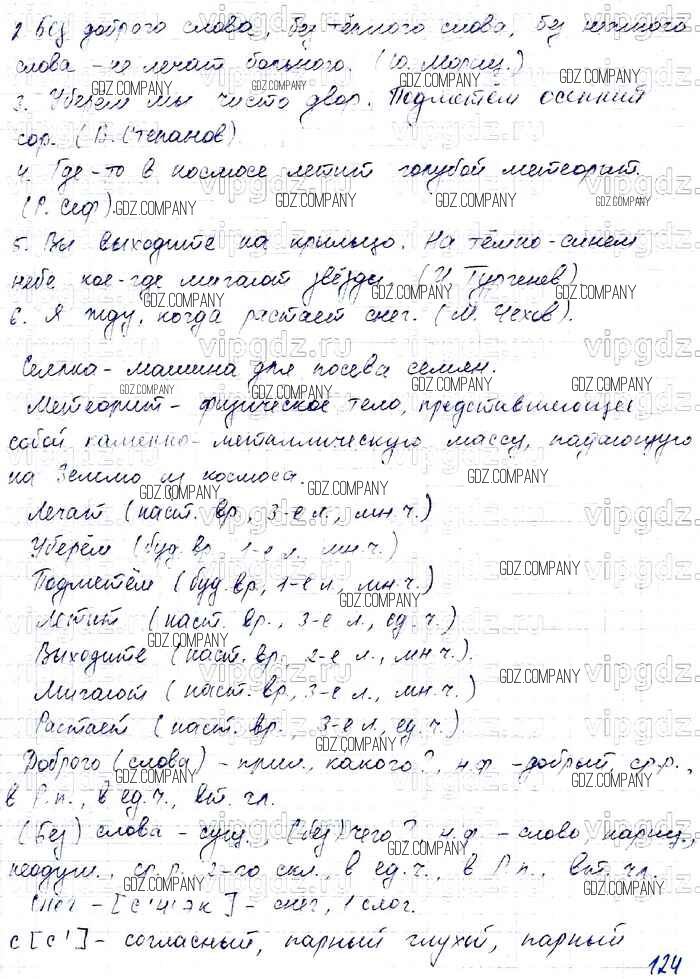 2 Без доброго слова, без тёплого слова, без нежного
слова - не лечат больного. (Ю. Мориц.)
3. Уберём мы чисто двор. Подметём осенний
сор. (В. Степанов)
4. Где-то в космосе летит голубой метеорит.
(Р. Сеф).
5. Вы выходите на крыльцо. На тёмно-синем
небе кое-где мигают звёзды (И Тургенев)
6. Я жду, когда растает снег. (М. Чехов).
Сеялка - машина для посева семян.
Метеорит - физическое тело, представляющее
собой каменно-металлическую массу, падающую
на Землю из космоса.
Лечат (наст. вр, 3-е л., мн.ч.)
Уберём (буд. вр, 1-е л, мн.ч.)
Подметём (буд. вр, 1-е л, мн.ч.)
Летит (наст. вр., 3-е л., ед. ч.)
Выходите (наст. вр, 2-е л., мн.ч.).
Мигают (наст. вр, 3-е л., мн.ч.)
Растает (наст. вр. 3-е л, ед.ч.)
Доброго (слова) - прил., какого?, н.ф - добрый, ср.р.,
в Р.п., в ед.ч., вт. чл.
(Без) слова - сущ., (без) чего? н.ф - слово, нариц.,
неодуш., ср.р. 2-го скл., в ед.ч., в Р.п., вт. чл.
Снег - [с'н'эк] - снег, 1 слог.
с [с'] - согласный, парный глухой, парный
124
GDZ.COMPANY
vipgdz.ru